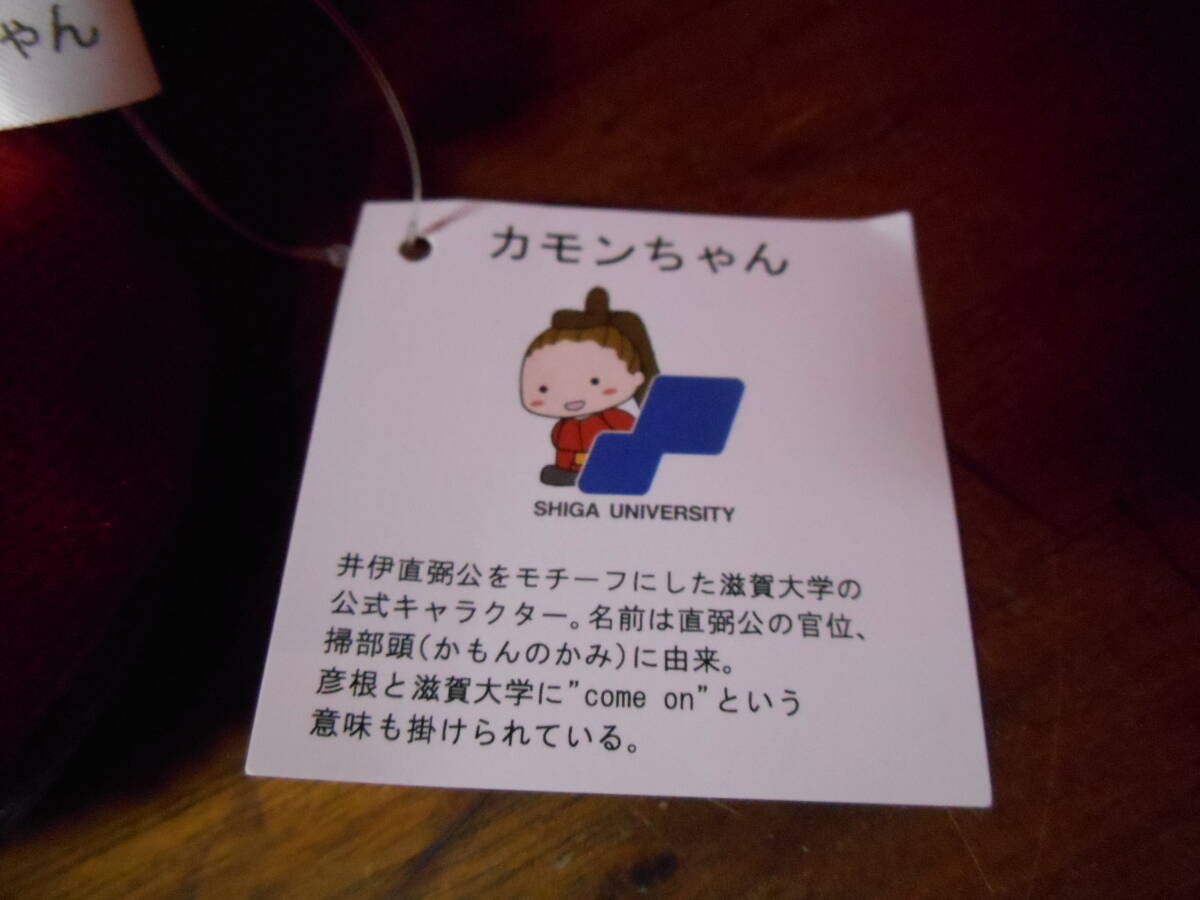 ゃん
カモンちゃん
SHIGA UNIVERSITY
井伊直弼公をモチーフにした滋賀大学の
公式キャラクター。名前は直弼公の官位、
掃部頭(かもんのかみ)に由来。
彦根と滋賀大学に”come on”という
意味も掛けられている。